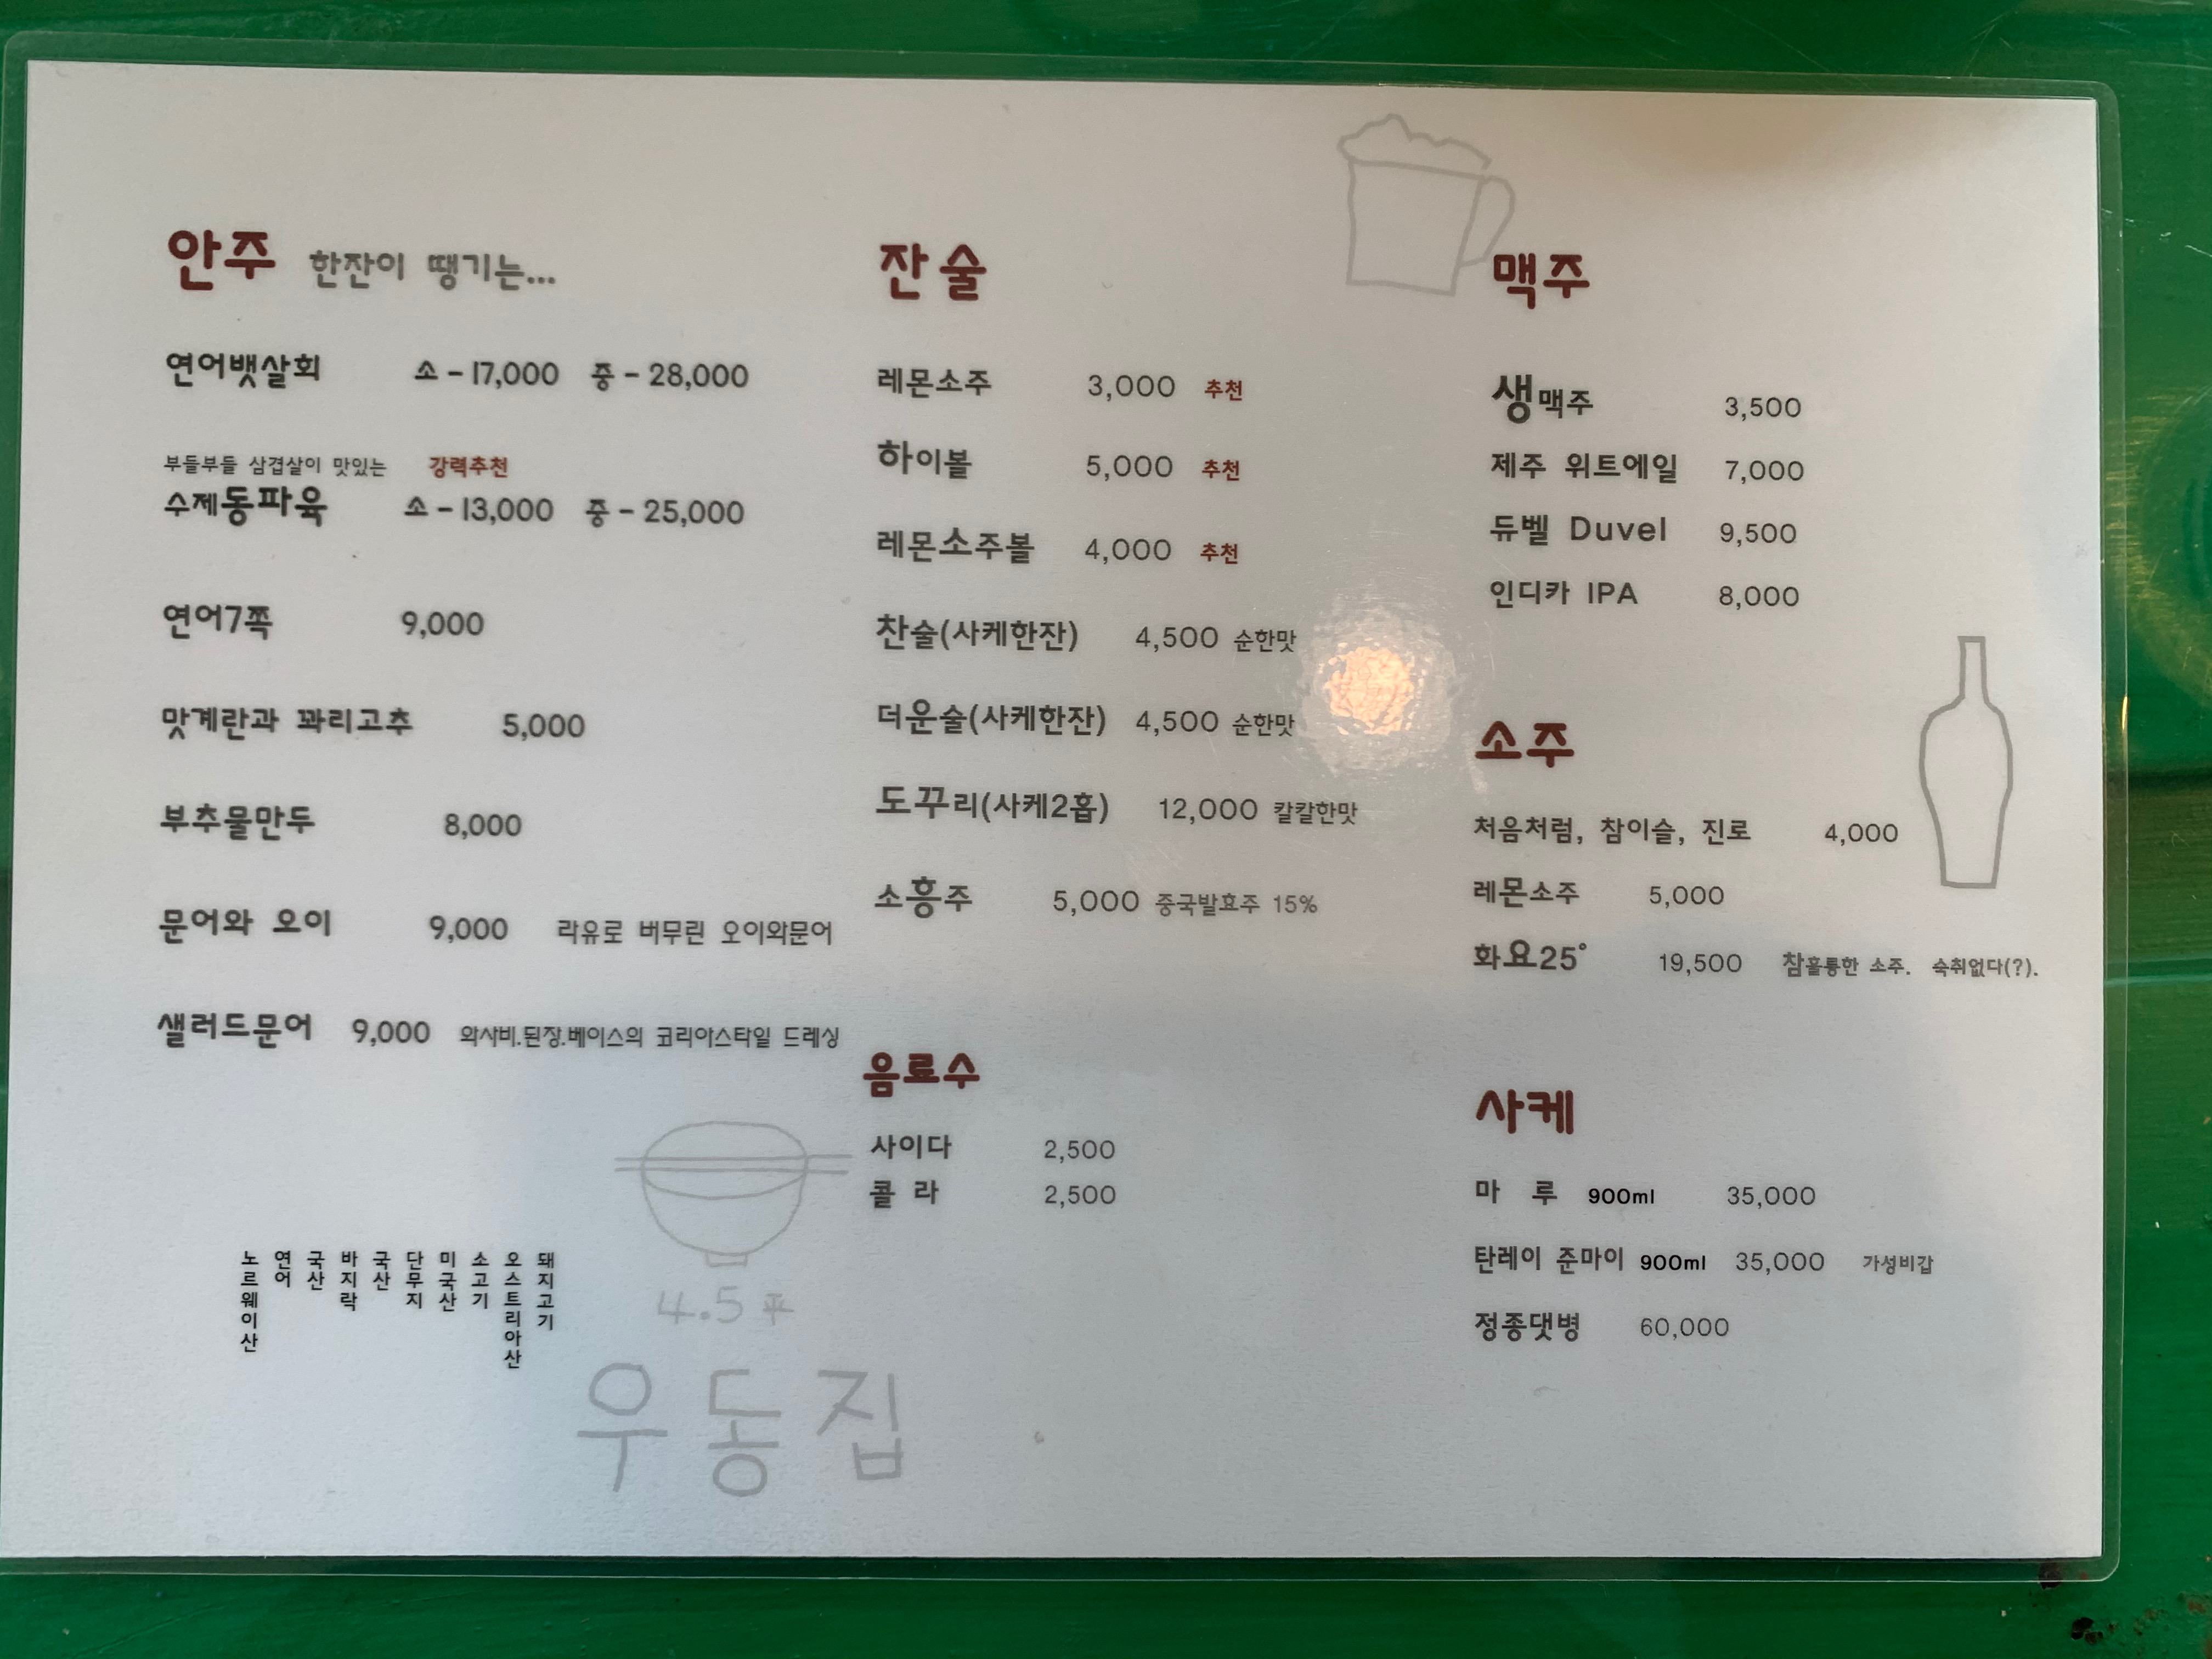 안주 한잔이 땡기는...
연어뱃살회 소 - 17,000 중 - 28,000
부들부들 삼겹살이 맛있는 강력추천
수제동파육 소 - 13,000 중 - 25,000
연어7쪽 9,000
맛계란과 꽈리고추 5,000
부추물만두 8,000
문어와 오이 9,000 라유로 버무린 오이와문어
샐러드문어 9,000 와사비.된장.베이스의 코리아스타일 드레싱
돼지고기
오스트리아산
소고기
미국산
단무지
국산
바지락
국산
연어
노르웨이산
4.5평
우동집
잔술
레몬소주 3,000 추천
하이볼 5,000 추천
레몬소주볼 4,000 추천
찬술(사케한잔) 4,500 순한맛
더운술(사케한잔) 4,500 순한맛
도꾸리(사케2홉) 12,000 칼칼한맛
소흥주 5,000 중국발효주 15%
음료수
사이다 2,500
콜 라 2,500
맥주
생맥주 3,500
제주 위트에일 7,000
듀벨 Duvel 9,500
인디카 IPA 8,000
소주
처음처럼, 참이슬, 진로 4,000
레몬소주 5,000
화요25° 19,500 참훌륭한 소주. 숙취없다(?).
사케
마 루 900ml 35,000
탄레이 준마이 900ml 35,000 가성비갑
정종댓병 60,000